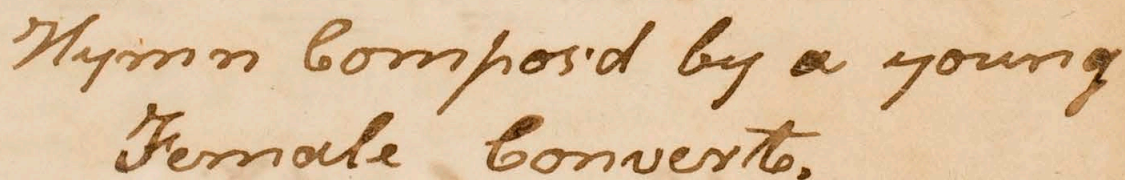 Hymn Compos'd by a young
Female Convert.